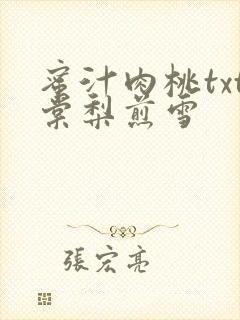 蜜汁肉桃txt
棠梨煎雪
張宏亮